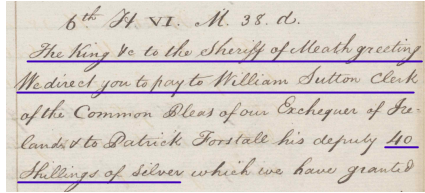 6th H VI. M. 38. d.
The King &c to the Sheriff of Meath greeting
We direct you to pay to William Sutton Clerk
of the Common Pleas of our Exchequer of Ire-
land & to Patrick Forstall his deputy 40
Shillings of Silver which we have granted